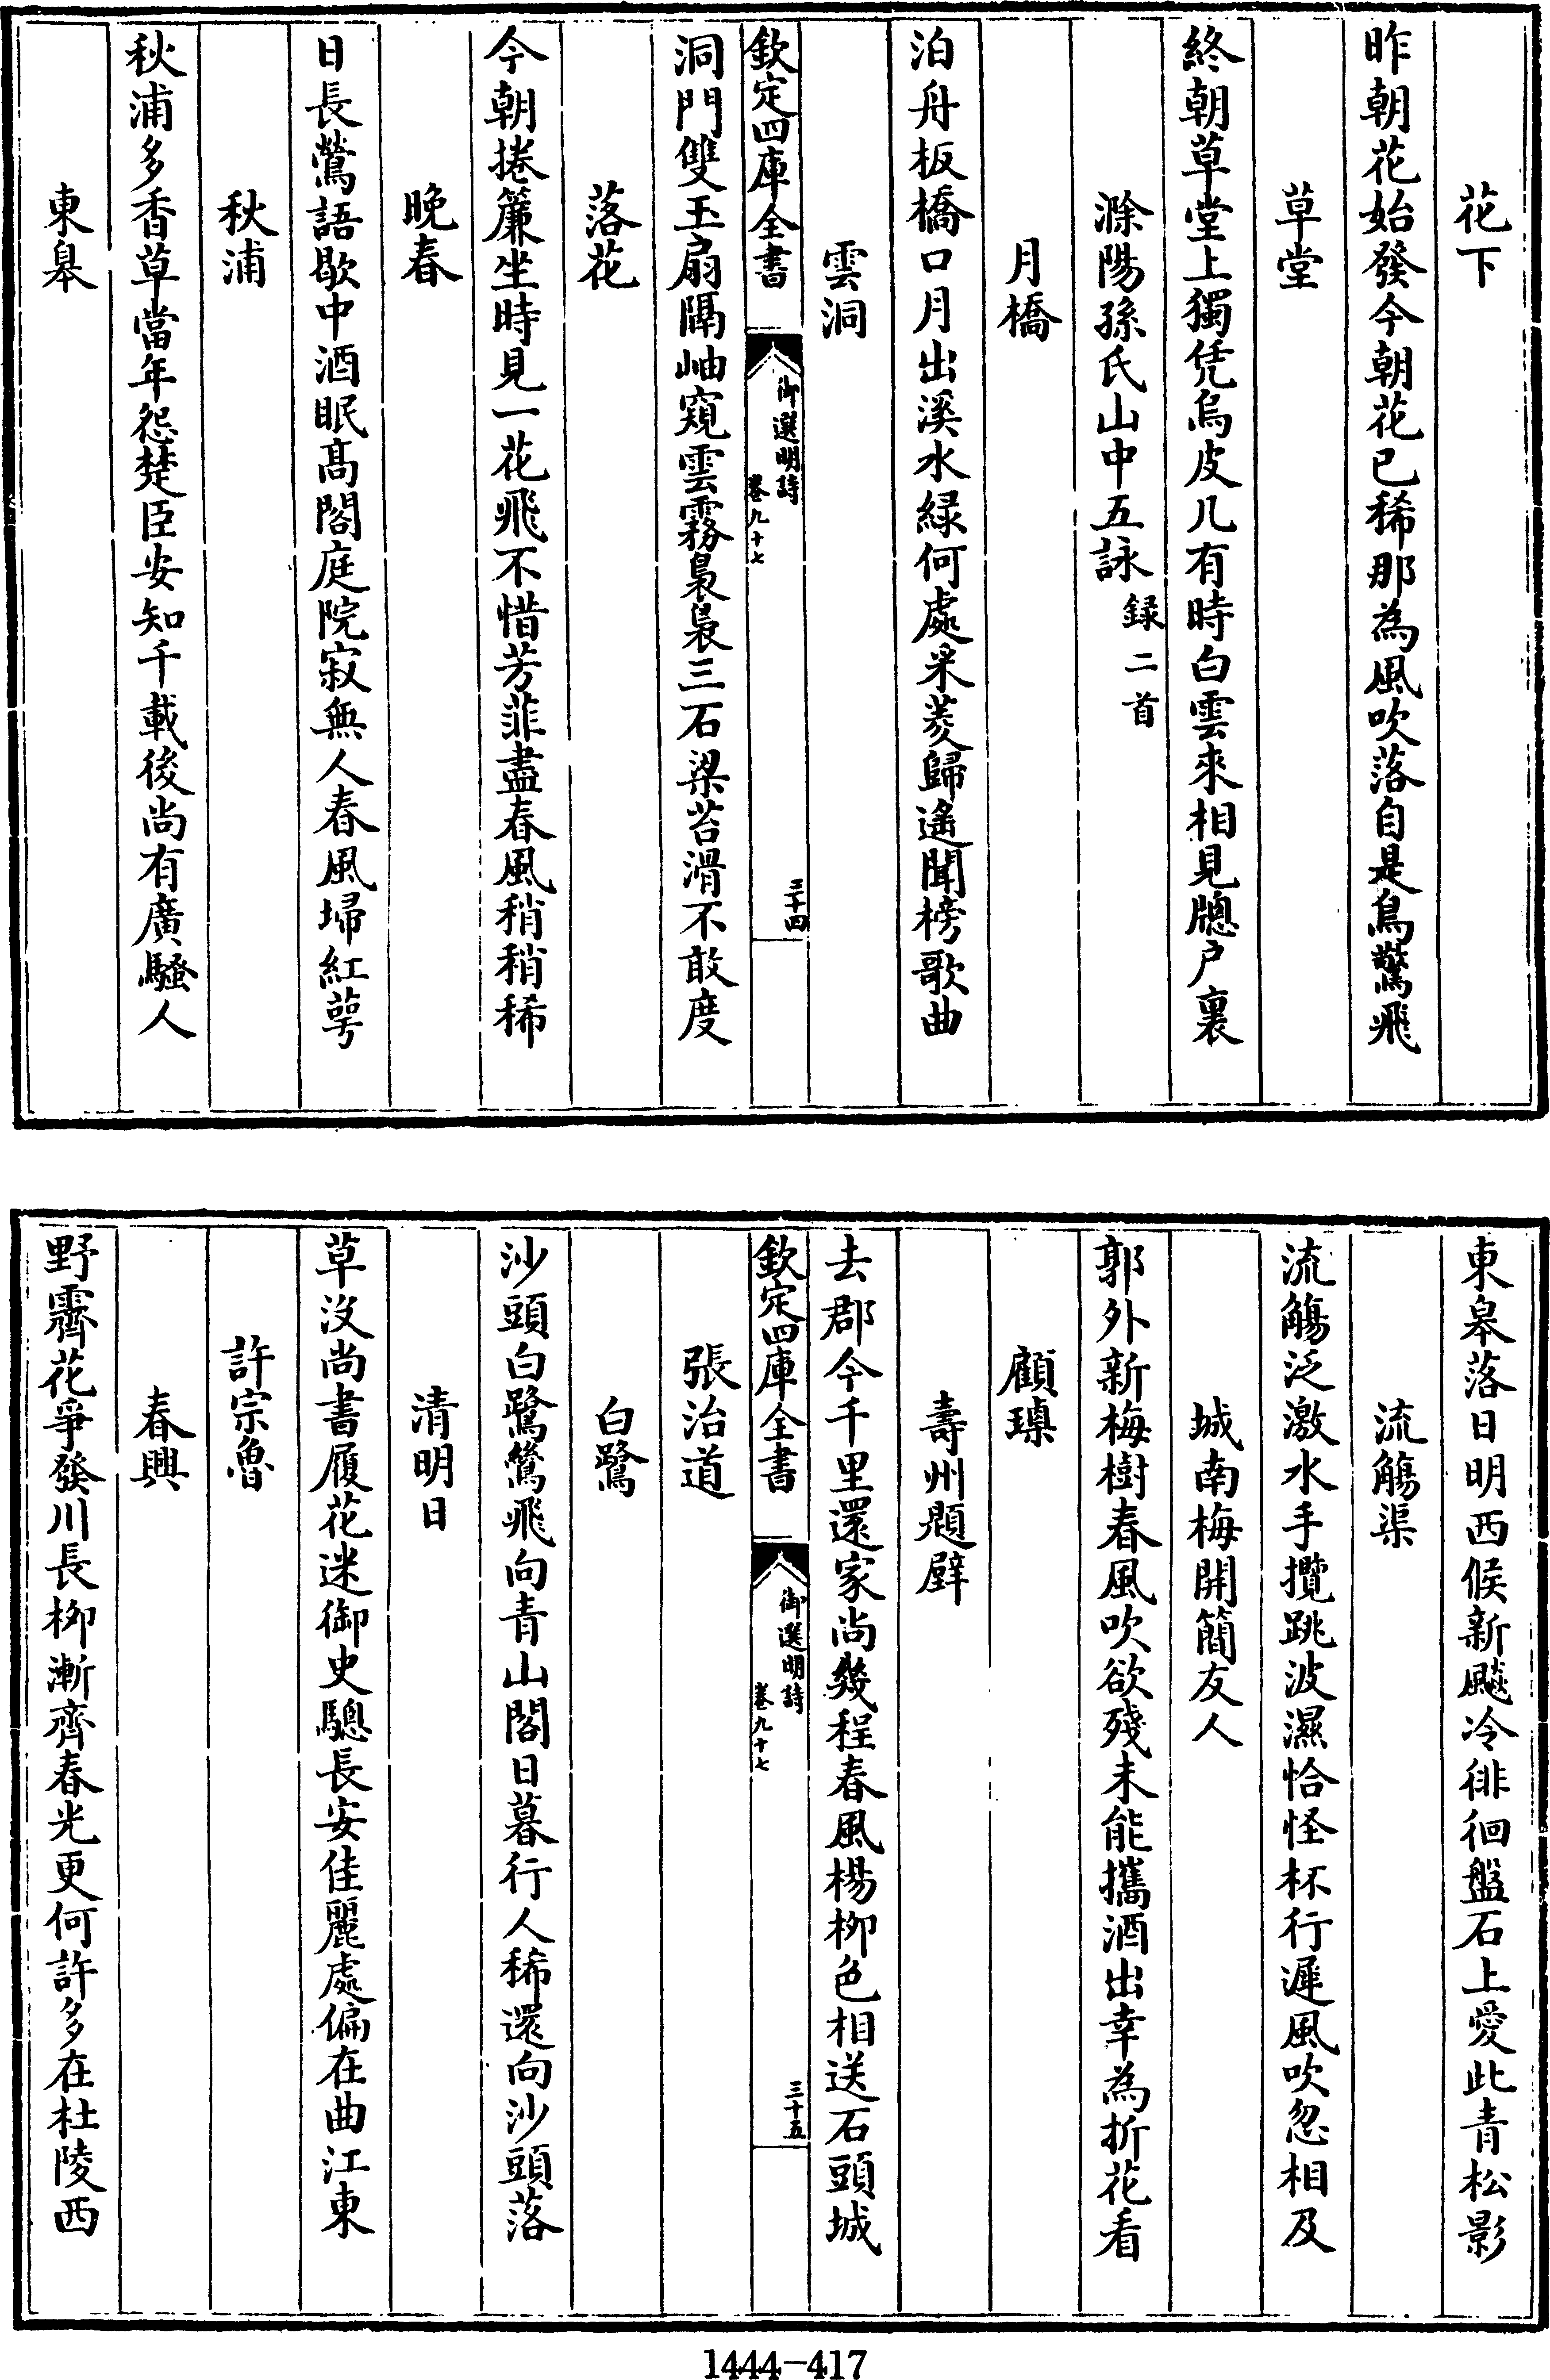 花下
昨朝花始發今朝花已稀那為風吹落自是鳥驚飛
草堂
終朝草堂上獨凭烏皮几有時白雲來相見牕户裏
滁陽孫氏山中五詠録二首
月橋
泊舟板橋口月出溪水緑何處采菱歸遙聞榜歌曲
雲洞
欽定四庫全書
御選明詩
卷九十七
三十四
洞門雙玉扇隔岫窺雲霧裊裊三石梁苔滑不敢度
落花
今朝捲簾坐時見一花飛不惜芳菲盡春風稍稍稀
晩春
日長鶯語歇中酒眠髙閣庭院寂無人春風埽紅萼
秋浦
秋浦多香草當年怨楚臣安知千載後尚有廣騷人
東臯
東臯落日明西候新飈冷徘徊盤石上愛此青松影
流觴渠
流觴泛激水手攬跳波濕恰怪杯行遲風吹忽相及
城南梅開簡友人
郭外新梅樹春風吹欲殘未能攜酒出幸為折花看
顧璟
壽州題壁
去郡今千里還家尚幾程春風楊柳色相送石頭城
欽定四庫全書
御選明詩
卷九十七
三十五
張治道
白鷺
沙頭白鷺鷥飛向青山閣日暮行人稀還向沙頭落
清明日
草没尚書履花迷御史驄長安佳麗處偏在曲江東
許宗魯
春興
野霽花爭發川長栁漸齊春光更何許多在杜陵西
1444-417